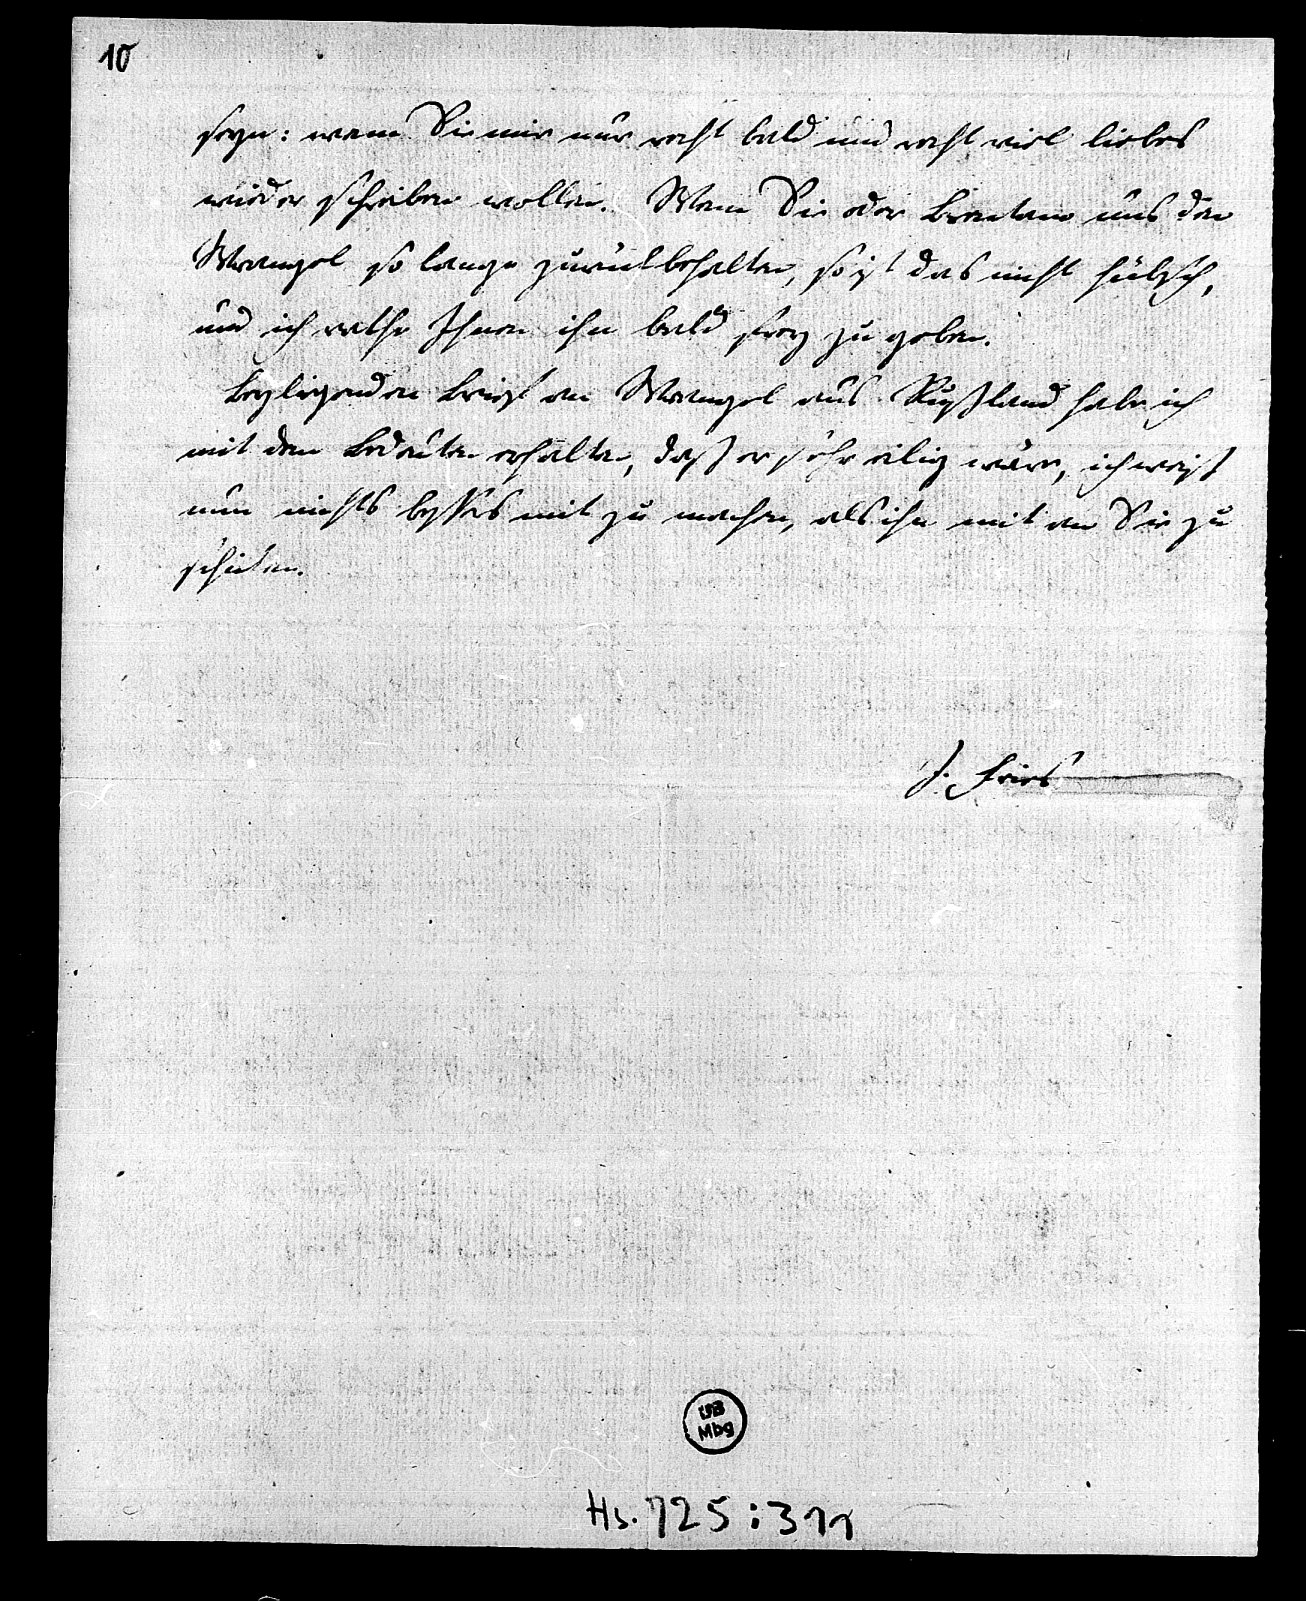 10
seyn: wenn Sie mir nur recht bald und recht viel liebes
wieder schreiben wollen. Wenn Sie oder Brentano uns den
Wrangel so lange zurückbehalten, so ist das nicht hübsch,
und ich rathe Ihnen ihn bald frey zu geben.
Beyliegenden Brief an Wrangel aus Rußland habe ich
mit dem Bedeuten erhalten, daß er sehr eilig wäre, ich weiß
nun nichts beßres mit zu machen, als ihn mit an Sie zu
schicken.
J. Fries
UB
Mbg
Hs. 725:311